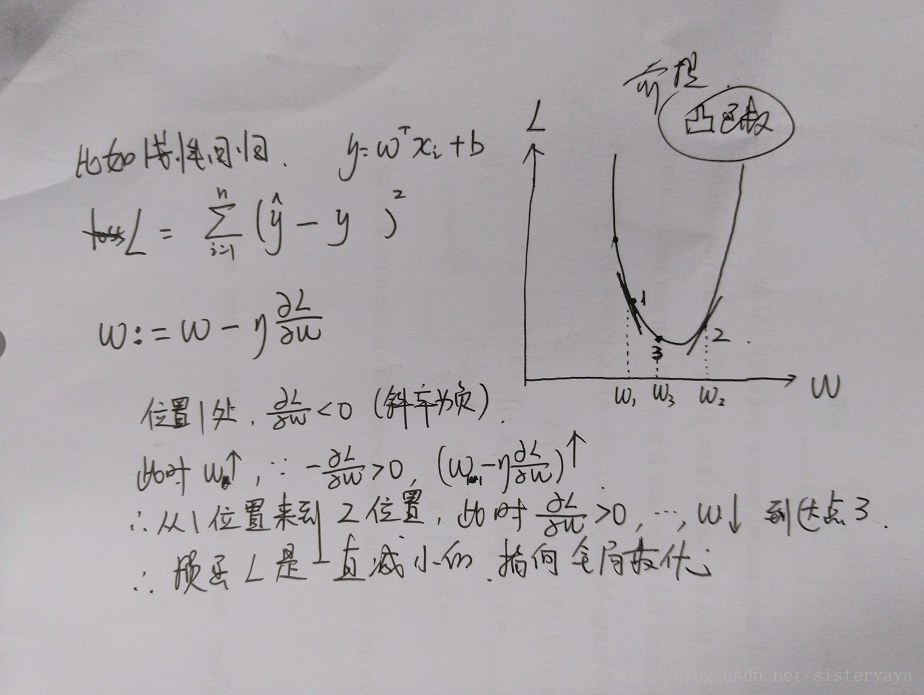 前提
凸函数
比如线性回归. y=wᵀxᵢ+b
L = \sum_{i=1}^{n} (ŷ - y )²
w := w - η ∂L/∂w
L
1
2
3
w₁ w₃ w₂
w
位置1处, ∂L/∂w<0 (斜率为负).
此时 w↑, ∵ -∂L/∂w>0, (w-η∂L/∂w)↑
∴从1位置来到2位置, 此时 ∂L/∂w>0, …, w↓ 到达点3.
∴ 损失L是一直减小的, 指向全局最优
blog.csdn.net/sisteryaya